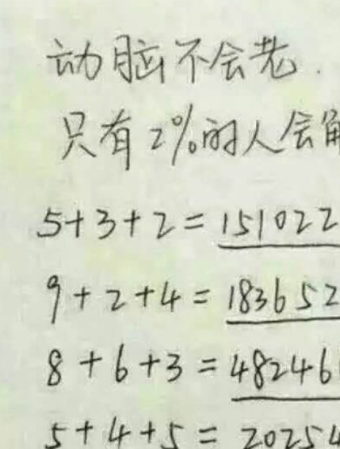 动脑不会老.
只有2%的人会解
5+3+2=151022
9+2+4=183652
8+6+3=48246
5+4+5=20254